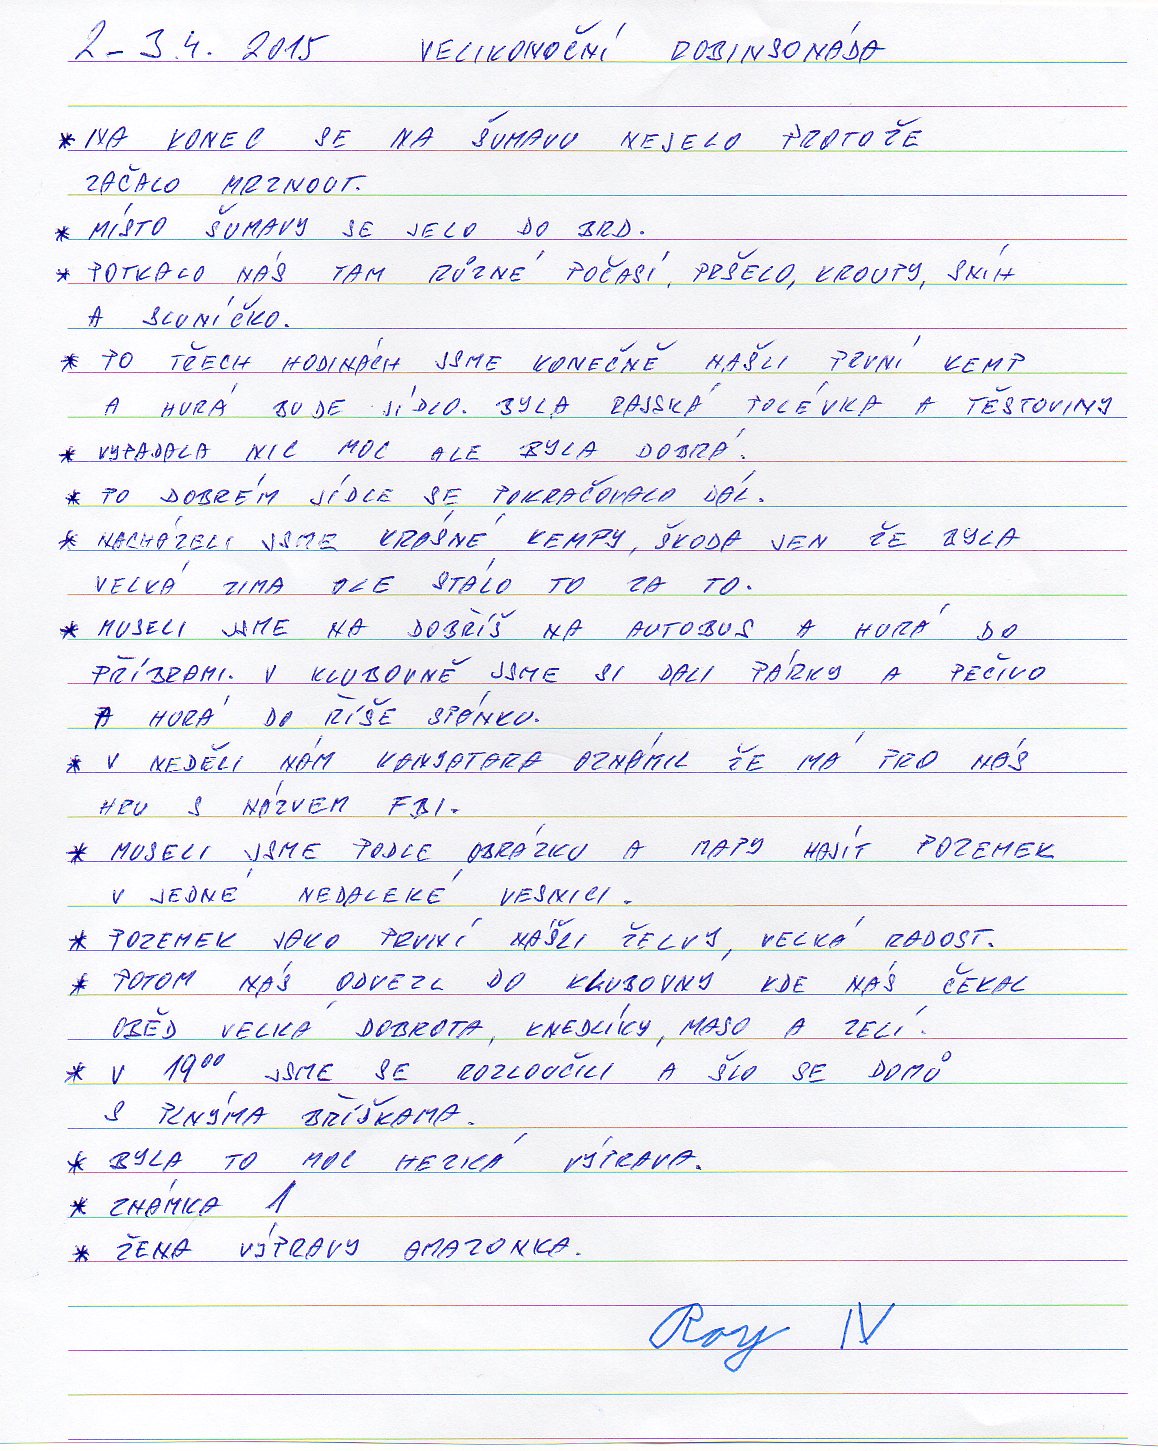 2-3.4. 2015 VELIKONOČNÍ ROBINSONÁDA
* NA KONEC SE NA ŠUMAVU NEJELO PROTOŽE
ZAČALO MRZNOUT.
* MÍSTO ŠUMAVY SE JELO DO BRD.
* POTKALO NÁS TAM RŮZNÉ POČASÍ, PRŠELO, KROUPY, SNÍH
A SLUNÍČKO.
* PO TŘECH HODINÁCH JSME KONEČNĚ NAŠLI PRVNÍ KEMP
A HURÁ BUDE JÍDLO. BYLA RAJSKÁ POLÉVKA A TĚSTOVINY
* VYPADALA NIC MOC ALE BYLA DOBRÁ.
* PO DOBRÉM JÍDLE SE POKRAČOVALO DÁL.
* NACHÁZELI JSME KRÁSNÉ KEMPY, ŠKODA JEN ŽE BYLA
VELKÁ ZIMA ALE STÁLO TO ZA TO.
* MUSELI JSME NA DOBŘÍŠ NA AUTOBUS A HURÁ DO
PŘÍBRAMI. V KLUBOVNĚ JSME SI DALI PÁRKY A PEČIVO
A HURÁ DO ŘÍŠE SPÁNKU.
* V NEDĚLI NÁM KANJATARA OZNÁMIL ŽE MÁ PRO NÁS
HRU S NÁZVEM FBI.
* MUSELI JSME PODLE OBRÁZKU A MAPY NAJÍT POZEMEK
V JEDNÉ NEDALEKÉ VESNICI.
* POZEMEK JAKO PRVNÍ NAŠLI ŽELVY, VELKÁ RADOST.
* POTOM NÁS ODVEZL DO KLUBOVNY KDE NÁS ČEKAL
OBĚD VELKÁ DOBROTA, KNEDLÍKY, MASO A ZELÍ.
* V 19⁰⁰ JSME SE ROZLOUČILI A ŠLO SE DOMŮ
S PLNÝMA BŘÍŠKAMA.
* BYLA TO MOC HEZKÁ VÝPRAVA.
* ZNÁMKA 1
* ŽENA VÝPRAVY AMAZONKA.
Roy IV